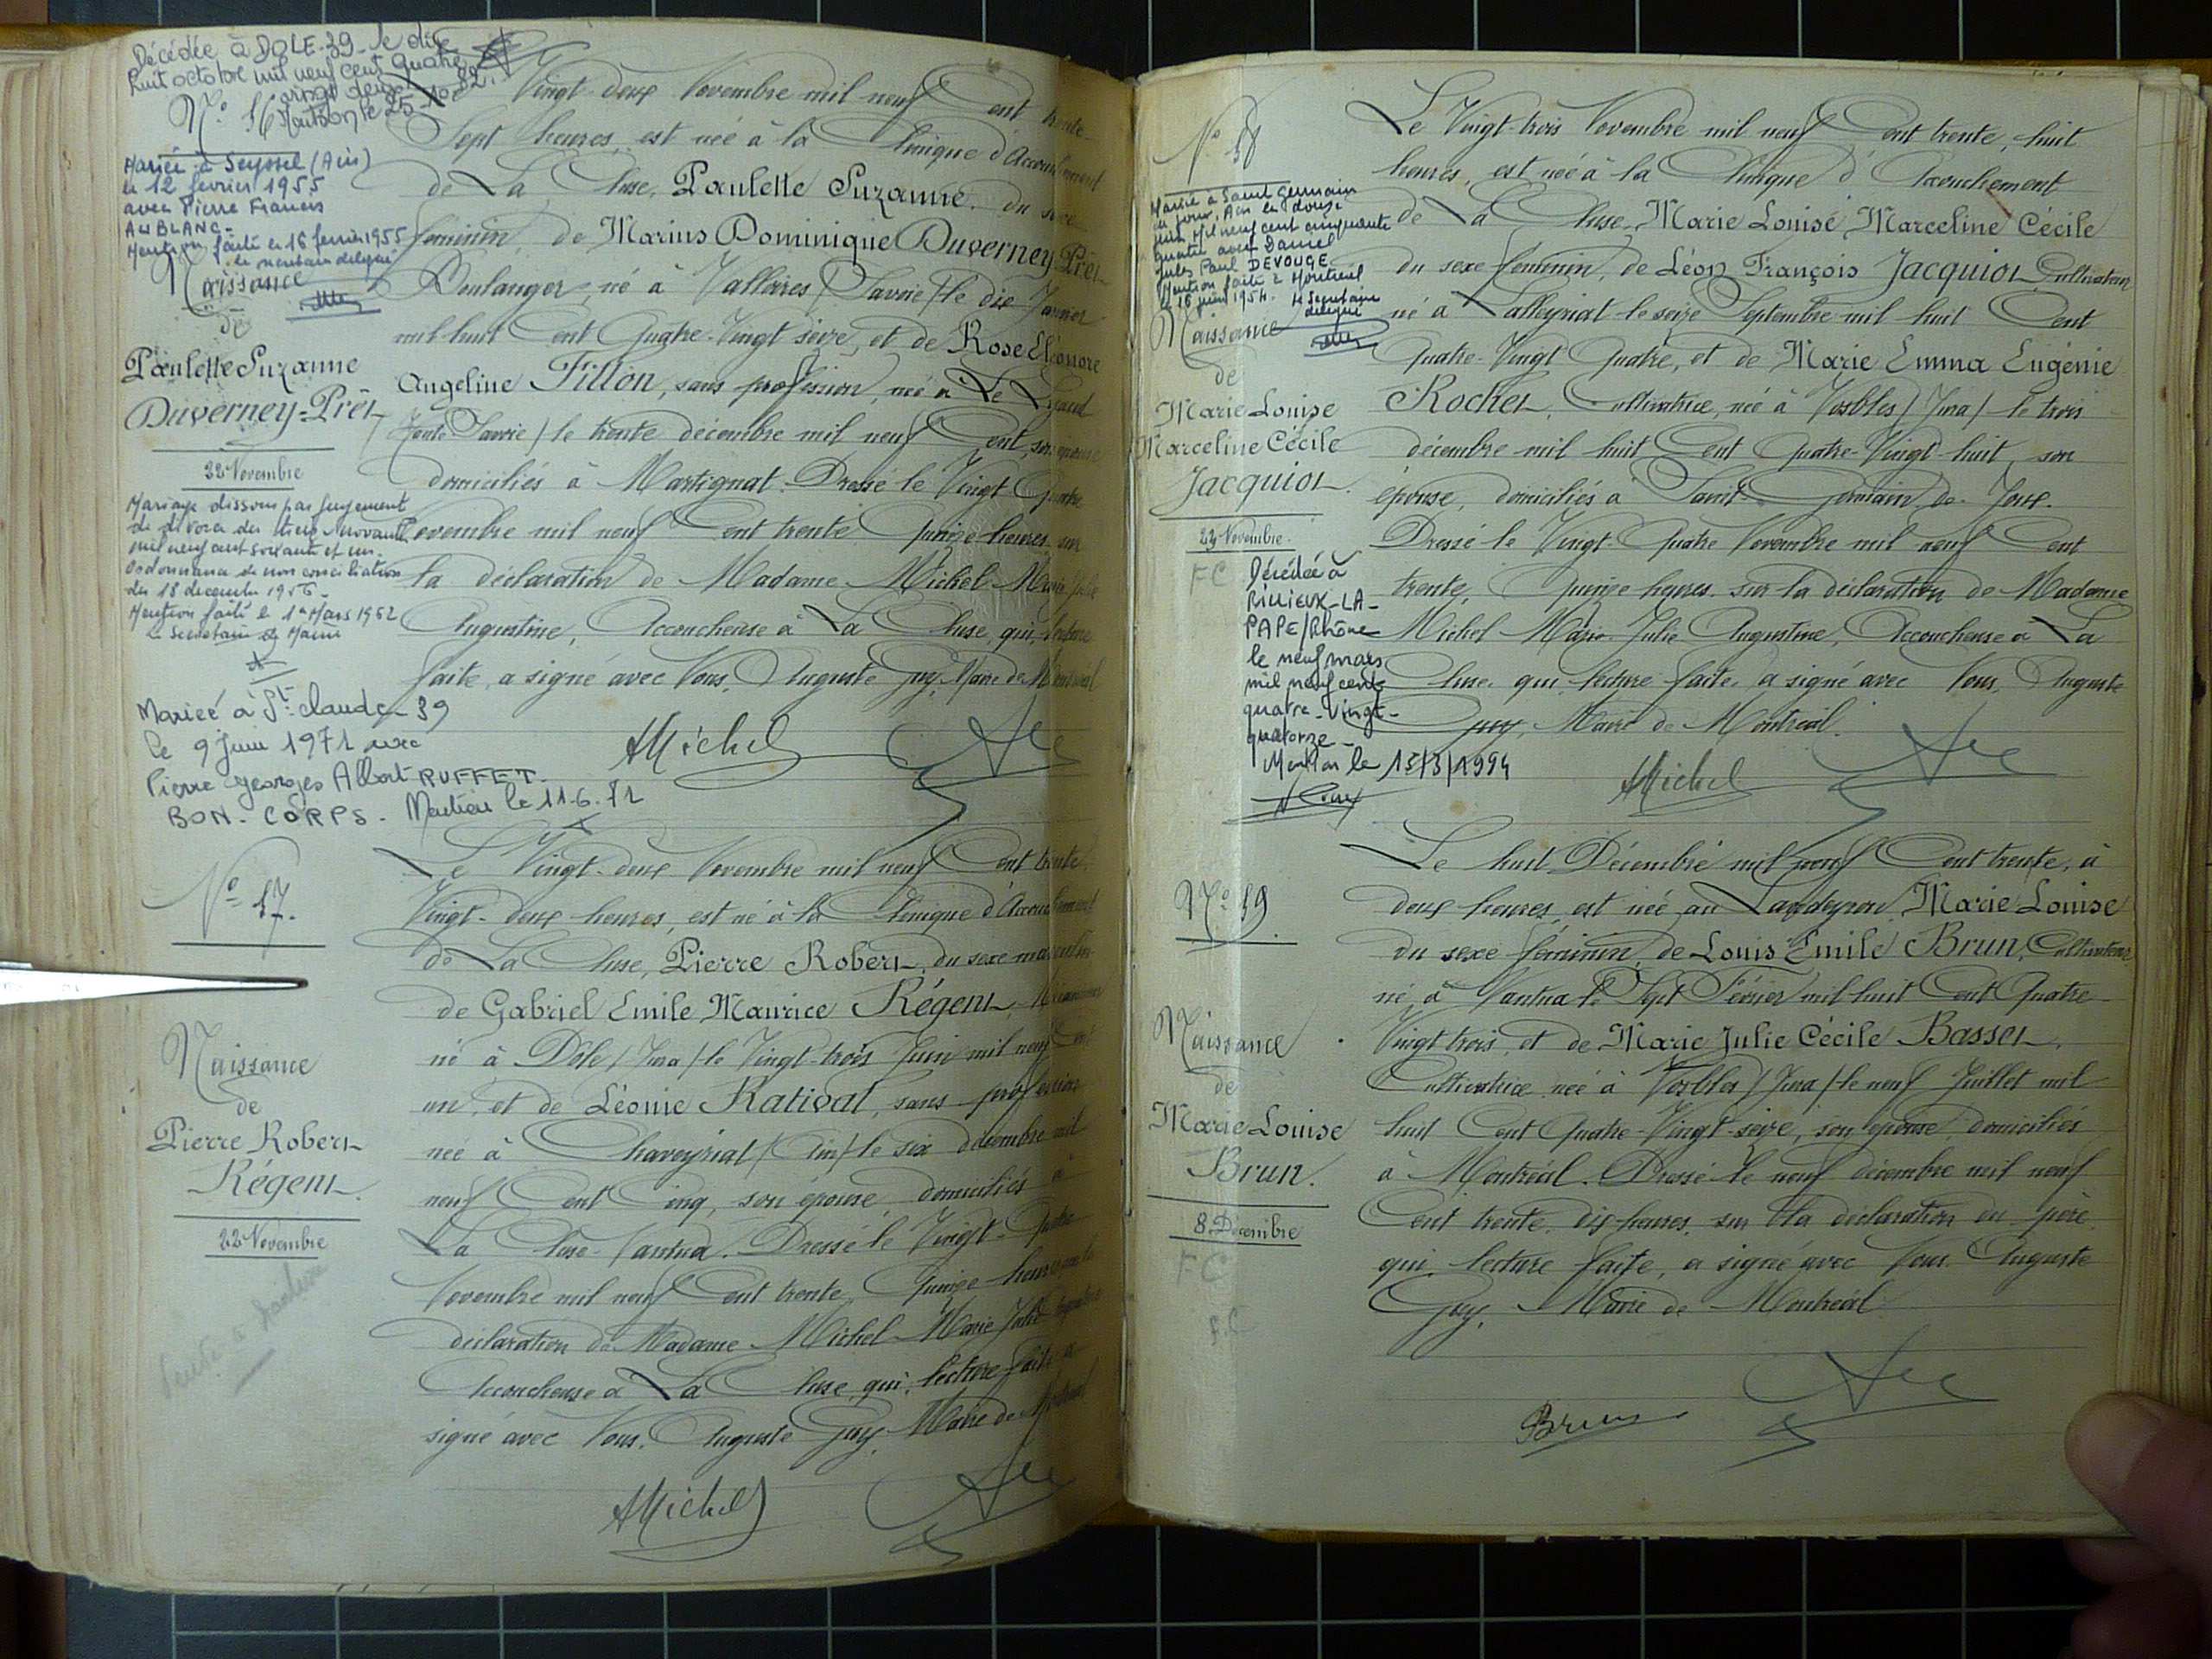 Décédée à DOLE-39- le dix
huit octobre mil neuf cent quatre
vingt deux.
Mention le 25-10-82.
N° 16
Mariée à Seyssel (Ain)
le 12 février 1955
avec Pierre Francis
AUBLANC-
Mention faite le 16 février 1955
le secrétaire délégué
Naissance
de
Paulette Suzanne
Duverney-Prêt
22 Novembre
Mariage dissous par jugement
de divorce du
mil neuf cent soixante et un.
Ordonnance de non conciliation
du 18 décembre
Mention faite le 1er Mars 1962
Le Secrétaire de Mairie
Mariée à St-Claude-39
le 9 juin 1971 avec
Pierre Georges Albert RUFFET-
BON-CORPS. Mention le 11-6-71
Le Vingt-deux Novembre mil neuf Cent trente
Sept heures, est née à la Clinique d'Accouchement
de La Cluse, Paulette Suzanne, du sexe
féminin, de Marius Dominique Duverney-Prêt
Boulanger, né à Vallières /Savoie/ le dix Janvier
mil huit Cent Quatre-Vingt seize, et de Rose Eléonore
Angeline Fillon, sans profession, née à Le Lyaud
/Haute Savoie/ le trente décembre mil neuf Cent, son épouse
domiciliés à Martignat. Dressé le Vingt Quatre
Novembre mil neuf Cent trente Quinze heures sur
la déclaration de Madame Michel Marie Julie
Augustine, Accoucheuse à La Cluse, qui, lecture
faite, a signé avec Nous, Auguste Guy, Maire de Montréal
AMichel
N° 17.
Naissance
de
Pierre Robert
Régent.
22 Novembre
Le Vingt-deux Novembre mil neuf Cent trente
Vingt-deux heures, est né à la Clinique d'Accouchement
de La Cluse, Pierre Robert, du sexe masculin
de Gabriel Emile Maurice Régent, Mécanicien
né à Dôle /Jura/ le Vingt-trois Juin mil neuf Cent
un, et de Léonie Rativat, sans profession
née à Chaveyriat /Ain/ le six décembre mil
neuf Cent Cinq, son épouse, domiciliés à
La Cluse-Nantua. Dressé le Vingt-Quatre
Novembre mil neuf Cent trente, Quinze heures, sur la
déclaration de Madame Michel Marie Julie Augustine
Accoucheuse à La Cluse, qui, lecture faite a
signé avec Nous, Auguste Guy, Maire de Montréal
AMichel
N° 18
Mariée à Saint Germain
de Joux, Ain le douze
juin mil neuf cent cinquante
quatre avec Daniel
Jules Paul DEVOUGE
Mention faite à Montréal
le 16 juin 1954. Le Secrétaire
délégué
Naissance
de
Marie Louise
Marceline Cécile
Jacquiot.
23 Novembre.
FC
Décédée à
RILLIEUX-LA-
PAPE/Rhône
le neuf mars
mil neuf cent
quatre-vingt-
quatorze-
Mention le 15/3/1994
Le Vingt-trois Novembre mil neuf Cent trente, huit
heures, est née à la Clinique d'Accouchement
de La Cluse, Marie Louise Marceline Cécile
du sexe féminin, de Léon François Jacquiot Cultivateur
né à Lalleyriat le seize Septembre mil huit Cent
Quatre-Vingt Quatre, et de Marie Emma Eugénie
Rochet, Cultivatrice, née à Vosbles /Jura/ le trois
décembre mil huit Cent Quatre-Vingt-huit, son
épouse, domiciliés à Saint-Germain-de-Joux.
Dressé le Vingt-Quatre Novembre mil neuf Cent
trente, Quinze heures, sur la déclaration de Madame
Michel Marie Julie Augustine, Accoucheuse à La
Cluse, qui, lecture faite, a signé avec Nous, Auguste
Guy, Maire de Montréal.
AMichel
N° 19
Naissance
de
Marie Louise
Brun.
8 Décembre
FC
F.C
Le huit Décembre mil neuf Cent trente, à
deux heures, est née au Landeyron, Marie Louise
du sexe féminin, de Louis Emile Brun, Cultivateur
né à Nantua le Sept Février mil huit Cent Quatre-
Vingt trois, et de Marie Julie Cécile Basset,
Cultivatrice, née à Vosbles /Jura/ le neuf Juillet mil
huit Cent Quatre-Vingt-seize, son épouse, domiciliés
à Montréal. Dressé le neuf décembre mil neuf
Cent trente, dix heures, sur la déclaration du père
qui, lecture faite, a signé avec Nous, Auguste
Guy, Maire de Montréal
Brun